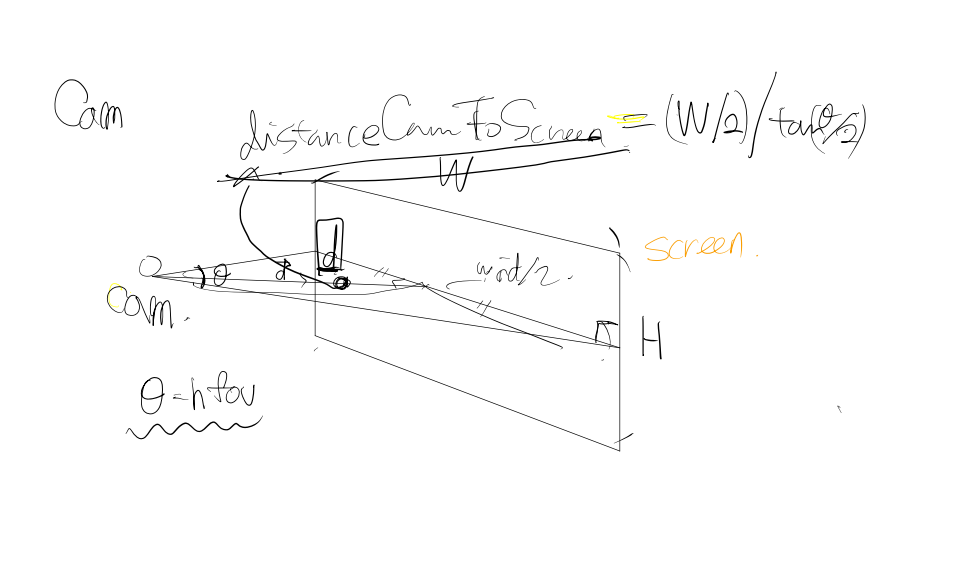 Cam
distanceCamToScreen = (W/2)/tan(θ/2)
W
screen.
d
θ
d
wid/2.
Cam.
H
θ=hfov